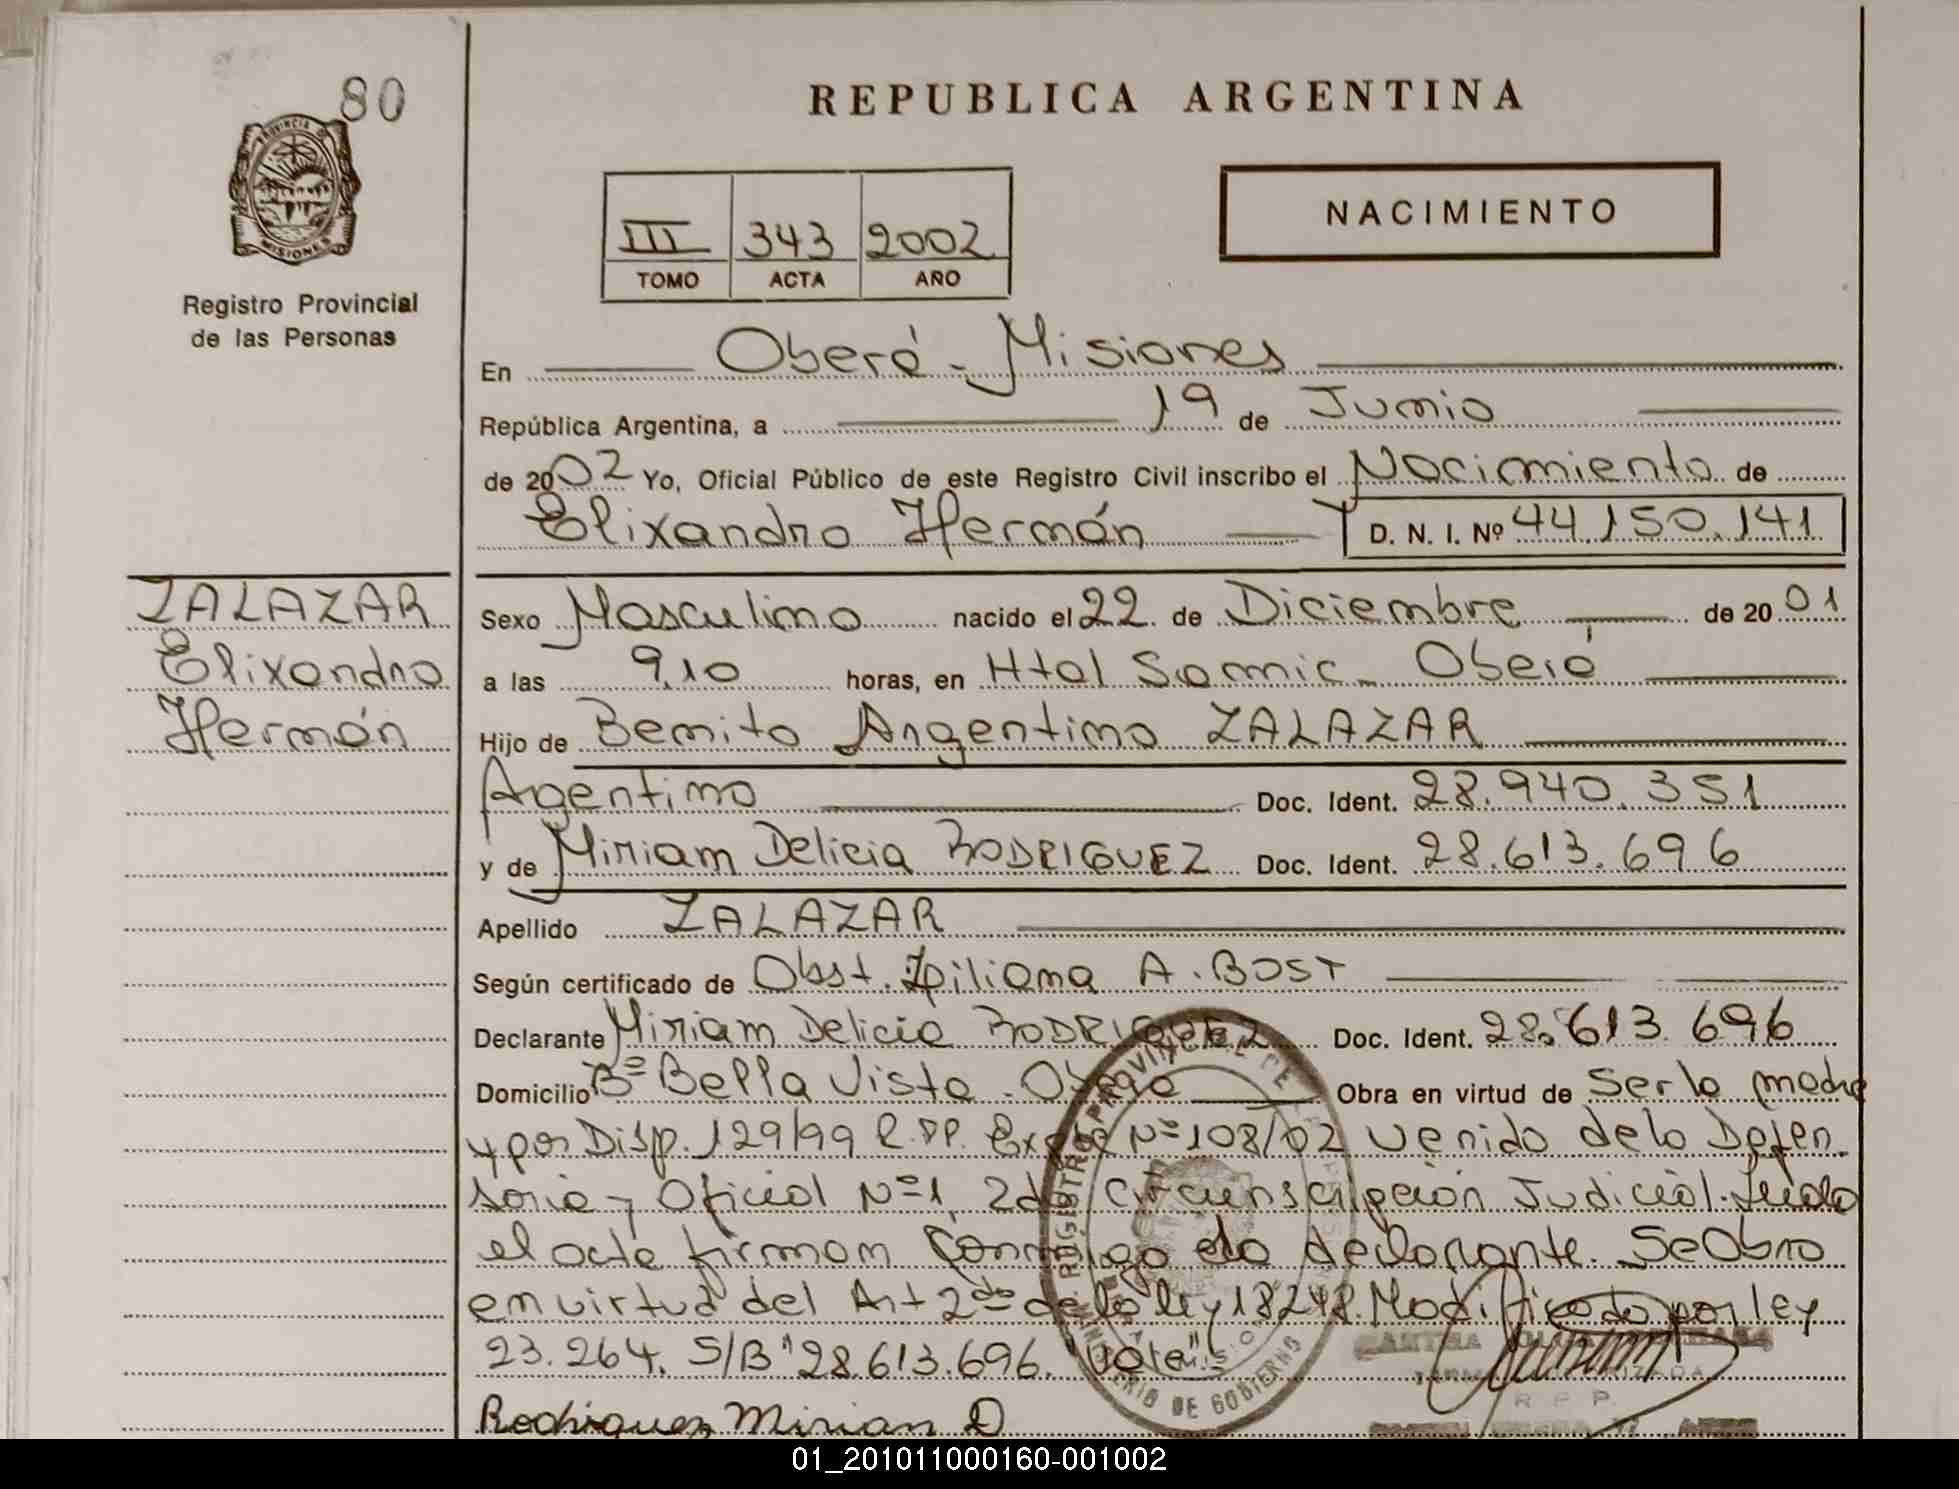 80
REPUBLICA ARGENTINA
PROVINCIA DE
MISIONES
Registro Provincial
de las Personas
III 343 2002
TOMO ACTA AÑO
NACIMIENTO
En Oberá - Misiones
República Argentina, a 19 de Junio
de 2002 Yo, Oficial Público de este Registro Civil inscribo el Nacimiento de
Elixandro Hernán D. N. I. Nº 44.150.141
ZALAZAR
Elixandro
Hernán
Sexo Masculino nacido el 22 de Diciembre de 2001
a las 9,10 horas, en Htal Samic - Oberá
Hijo de Benito Argentino ZALAZAR
Agentino Doc. Ident. 28.940.351
y de Miriam Delicia RODRIGUEZ Doc. Ident. 28.613.696
Apellido ZALAZAR
Según certificado de Obst. Liliana A. BOST
Declarante Miriam Delicia RODRIGUEZ Doc. Ident. 28.613.696
Domicilio Bº Bella Vista - Oberá Obra en virtud de Ser la madre
y por Disp. 129/99 R.P.P. Expte Nº 108/02 venido de la Defen
soria Oficial Nº 1, 2da Circunscripción Judicial. Leida
el acta firman conmigo la declarante. Se Obra
en virtud del Art 2do de la ley 18248. Modificado por ley
23.264. S/B "28.613.696. Vale"
Rodriguez Mirian D
REGISTRO PROVINCIAL DE
MINISTERIO DE GOBIERNO
R. P. P.
01_201011000160-001002